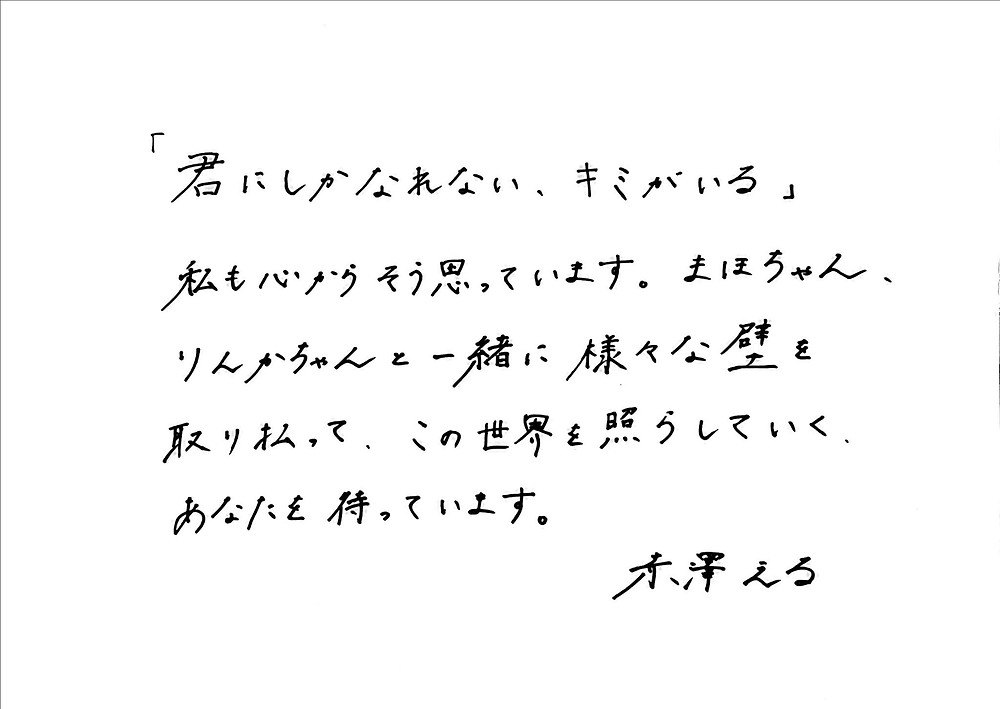 「君にしかなれない、キミがいる」
私も心からそう思っています。まほちゃん、
りんかちゃんと一緒に様々な壁を
取り払って、この世界を照らしていく、
あなたを待っています。
赤澤える